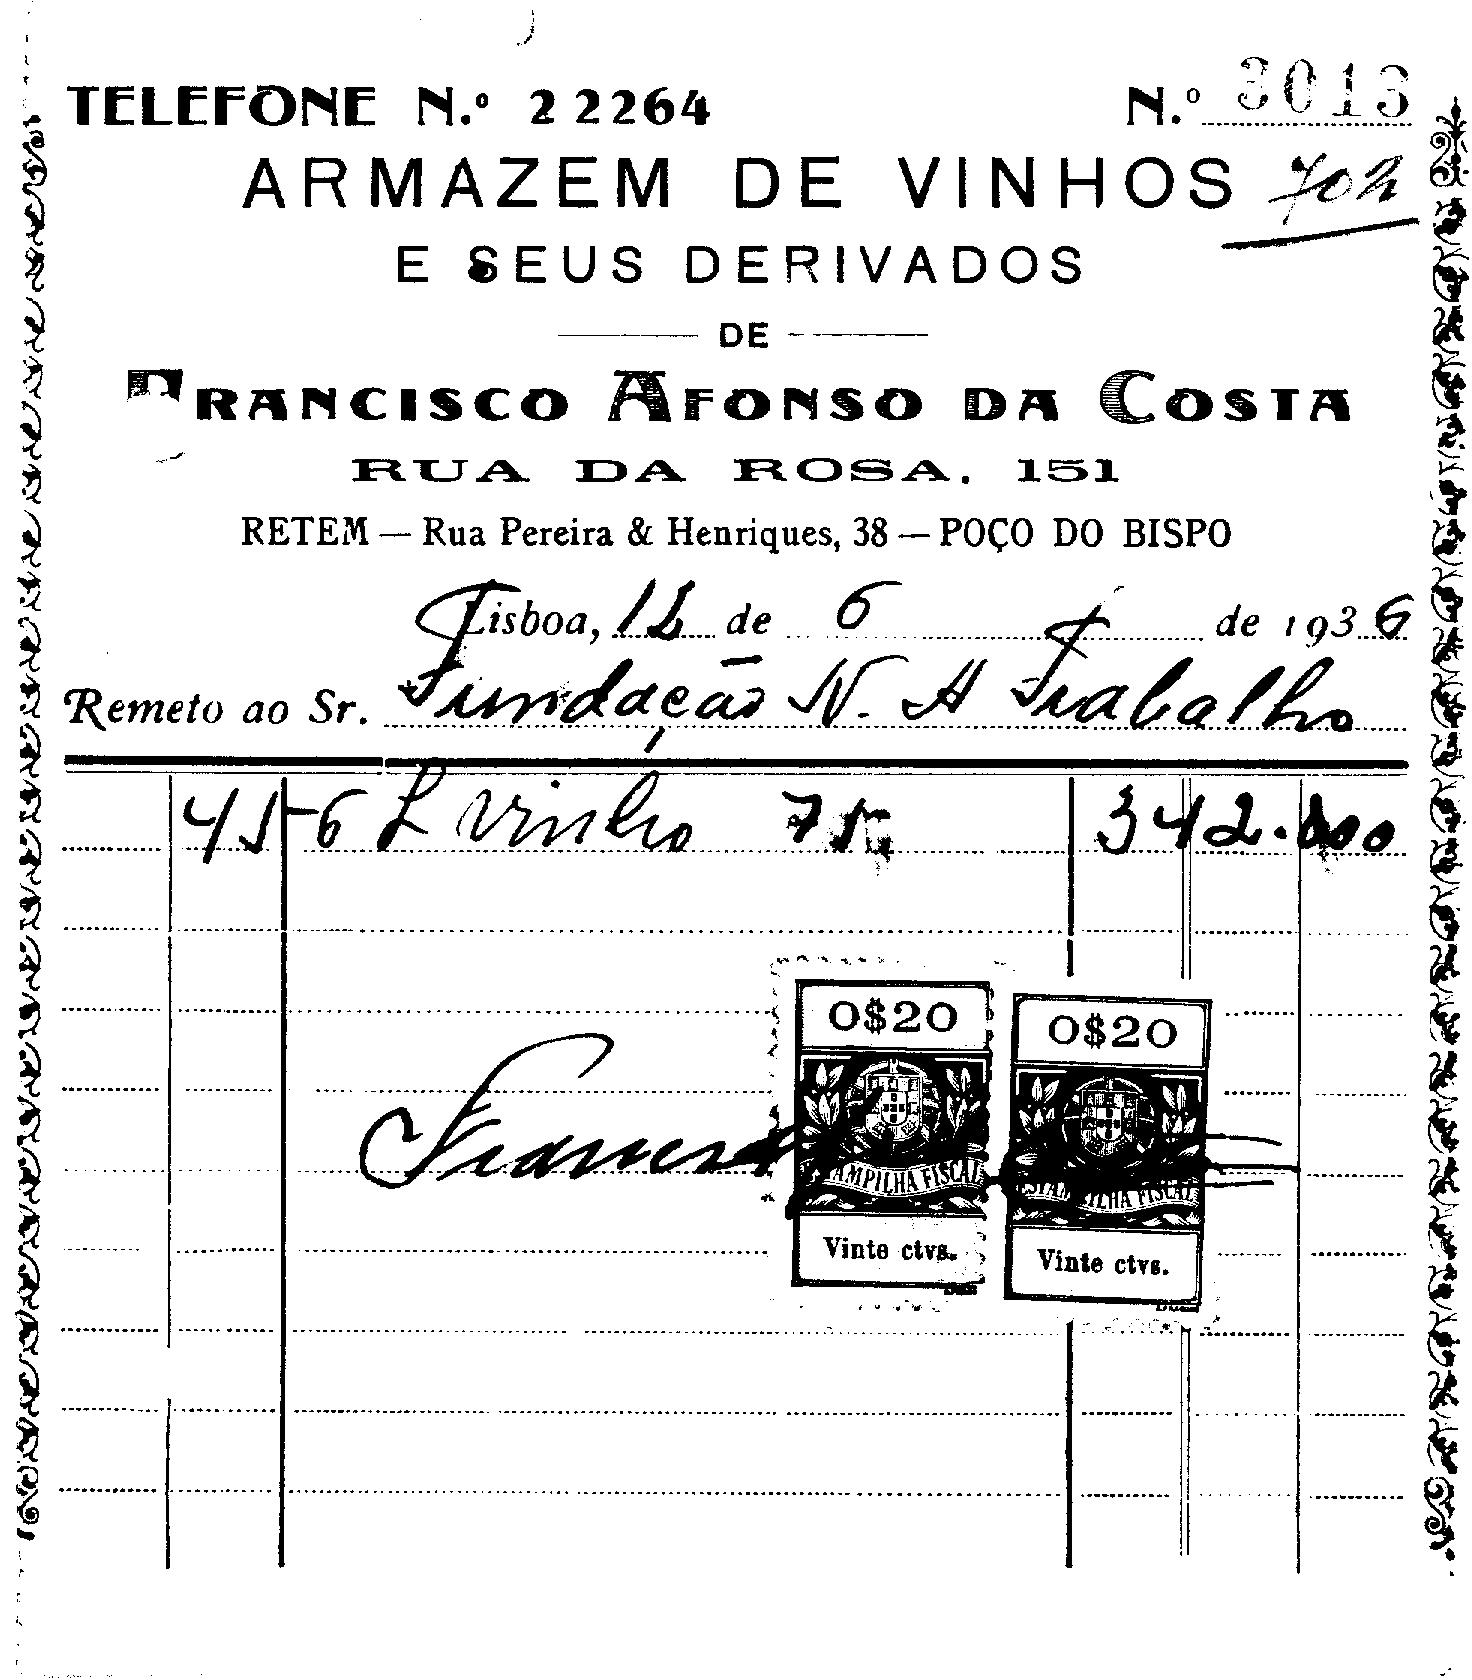 TELEFONE N.º 22264 N.º 3013
ARMAZEM DE VINHOS 702
E SEUS DERIVADOS
DE
FRANCISCO AFONSO DA COSTA
RUA DA ROSA, 151
RETEM — Rua Pereira & Henriques, 38 — POÇO DO BISPO
Lisboa, de 6 de 1936
Remeto ao Sr. Fundação N. A Trabalho
456 L Vinho 75 342.000
0$20 0$20
Francisco
ESTAMPILHA FISCAL ESTAMPILHA FISCAL
Vinte ctvs. Vinte ctvs.